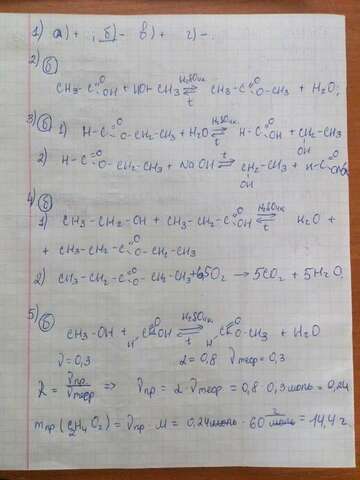 1) а) + , б) - в) + г) -.
2) б)
CH₃ - C(=O)OH + HOH CH₃ ⇌ (H₂SO₄к., t) CH₃ - C(=O)O - CH₃ + H₂O;
3) б) 1) H - C(=O)O - CH₂ - CH₃ + H₂O ⇌ (H₂SO₄к., t) H - C(=O)OH + CH₂ - CH₃ OH
2) H - C(=O)O - CH₂ - CH₃ + NaOH ⇌ (t) CH₂ - CH₃ OH + H - C(=O)ONa
4) б)
1) CH₃ - CH₂ - OH + CH₃ - CH₂ - C(=O)OH ⇌ (H₂SO₄к., t) H₂O +
+ CH₃ - CH₂ - C(=O)O - CH₂ - CH₃
2) CH₃ - CH₂ - C(=O)O - CH₂ - CH₃ + O₂ → 5CO₂ + 5H₂O.
5) б)
CH₃ - OH + H C(=O)OH ⇌ (H₂SO₄к., t) H C(=O)O - CH₃ + H₂O
ν = 0,3 α = 0,8 νтеор = 0,3
α = νпр/νтеор ⇒ νпр = α · νтеор = 0,8 · 0,3 моль = 0,24
mпр (C₂H₄O₂) = νпр · M = 0,24 моль · 60 г/моль = 14,4 г.